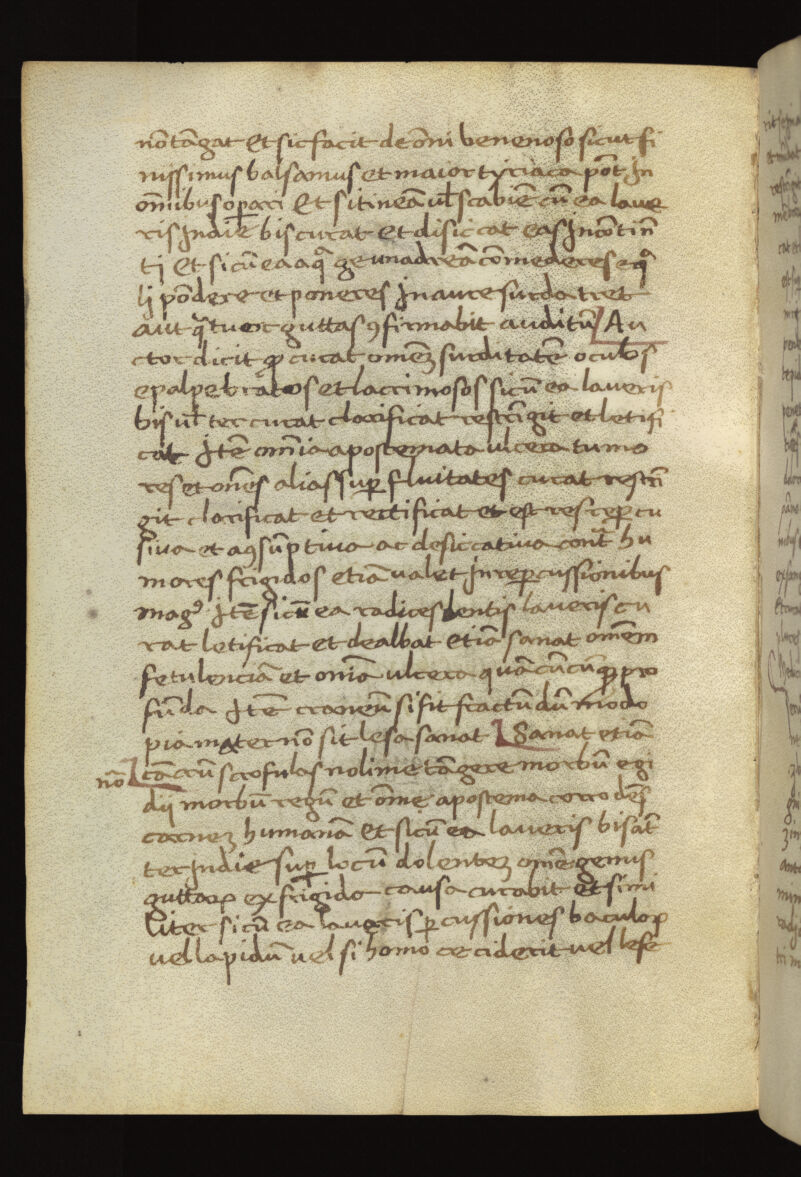 nō tāgat Et sic facit de ōni venenoso sicut fi
nissimus balsamus et maior tyriaca pōt In
omībus operari Et si tineā ul scabiē cū ea lave
ris In die bis curat et disiccat eas In cōtinē
ti Et si cū ea aqua geunadreā cōmederes equa
li pōdere et poneres In aure surda tres
aut quatuor guttas 9firmabit auditū Au
ctor dicit quod curat omēz surditatē oculos
epalpebratos et lacrimosos si cū ea laveris
bis ul ter curat clarificat restrīgit et letifi
cat Itē omīa apostemata ulcera tumo
res et onēs alias super fluitates curat restrī
git clarificat et rectificat et est res repercu
siva et a9sūptiva ac desiccativa contra hu
mores frigidos etiā valet In repercussionibus
mag9 Itē si cū ea radices dentis laveris cu
rat letificat et dealbat etiā sanat omēm
fetulenciā et onīa ulcera quācūcūque pro
fūda Itē craneū si fit fractū dū modo
pia mater nō sit lesa sanat Sanat etiā
nō cācrū scrofulas nolime tāgere morbū egi
dij morbū regiū et ōme apostema corrodēs
carnez humanā Et si cū ea laveris bis aut
ter In die super locū dolentez omē genus
guttarum ex frigida causa curabit et simi
liter si cū ea laveris percussiones baculorum
vel lapidū vel si homo ceciderit vel lese